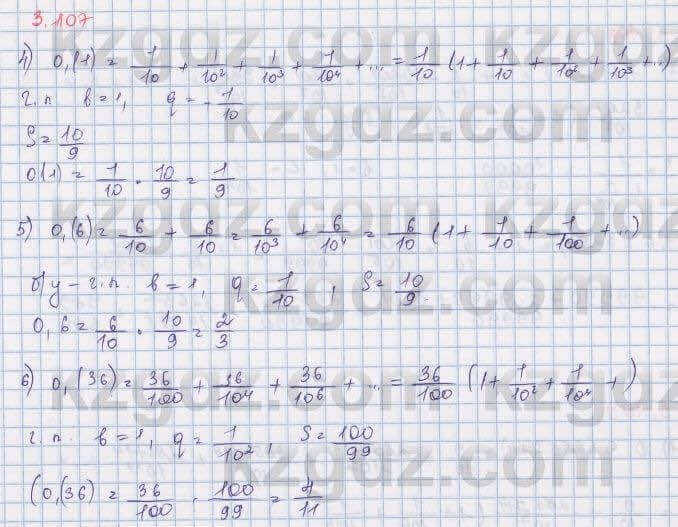 3.107
4) 0,(1) = 1/10 + 1/10² + 1/10³ + 1/10⁴ + ... = 1/10 (1 + 1/10 + 1/10² + 1/10³ + ..)
г.п в = 1, q = 1/10
S = 10/9
0(1) = 1/10 · 10/9 = 1/9
5) 0,(6) = 6/10 + 6/10 = 6/10³ + 6/10⁴ = 6/10 (1 + 1/10 + 1/100 + ...)
б/у - г.п. в = 1, q = 1/10, S = 10/9.
0,6 = 6/10 · 10/9 = 2/3
6) 0,(36) = 36/100 + 36/10⁴ + 36/10⁶ + ... = 36/100 (1 + 1/10² + 1/10⁴ + )
г.п. в = 1, q = 1/10², S = 100/99
(0,(36) = 36/100 · 100/99 = 4/11
kzgdz.com